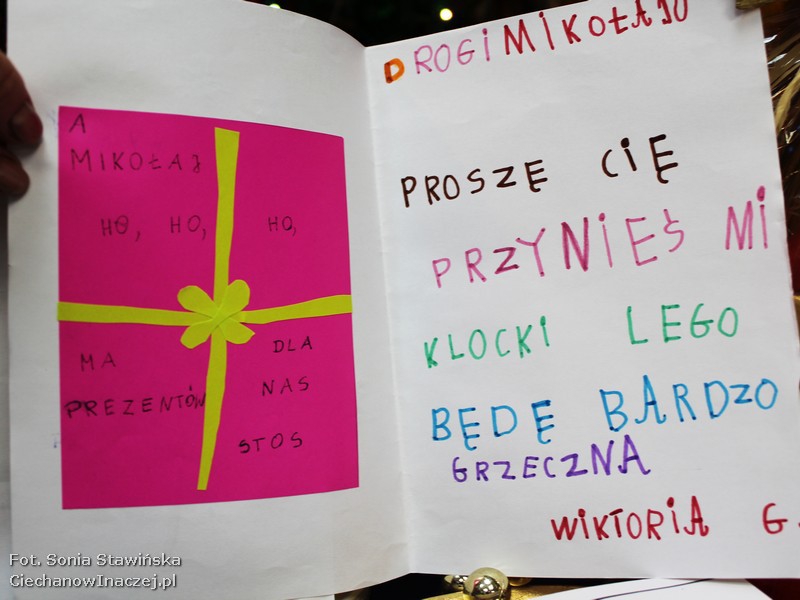 A
MIKOŁAJ
HO, HO, HO,
MA
PREZENTÓW
DLA
NAS
STOS
DROGI MIKOŁAJU
PROSZĘ CIĘ
PRZYNIEŚ MI
KLOCKI LEGO
BĘDĘ BARDZO
GRZECZNA
WIKTORIA G.
Fot. Sonia Stawińska
CiechanowInaczej.pl